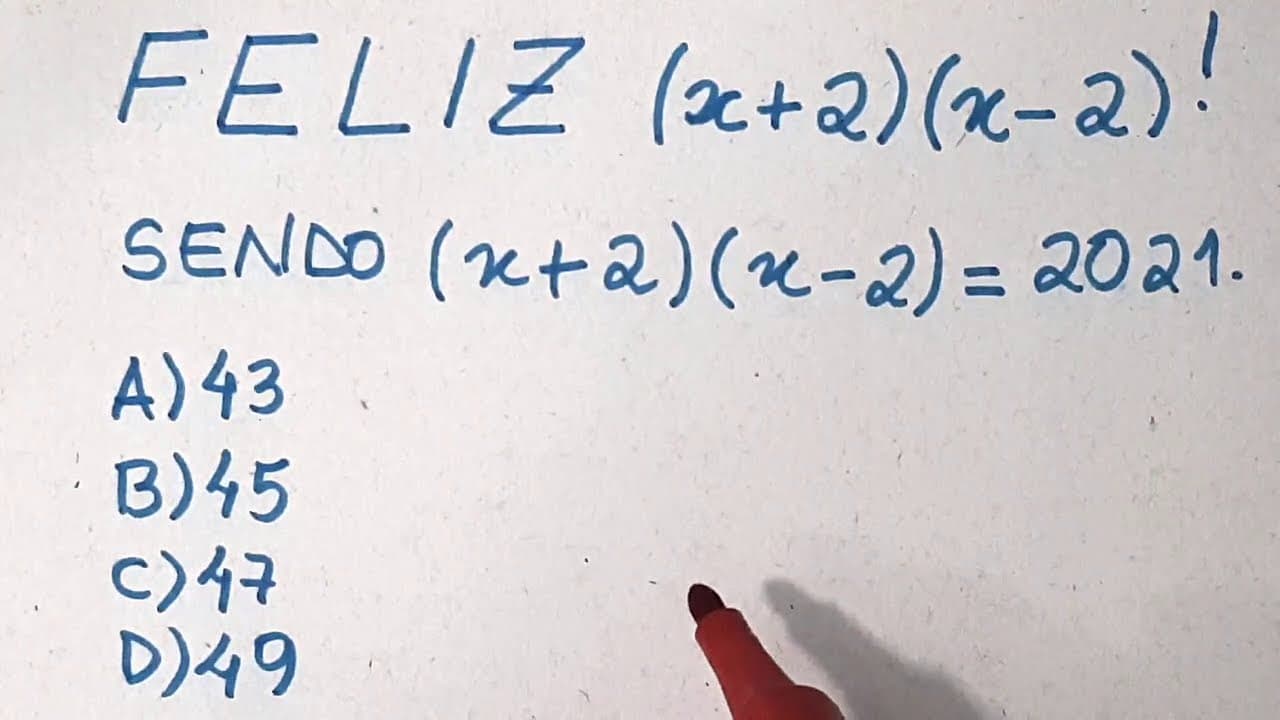 FELIZ (x+2)(x-2)!
SENDO (x+2)(x-2)=2021.
A) 43
B) 45
C) 47
D) 49